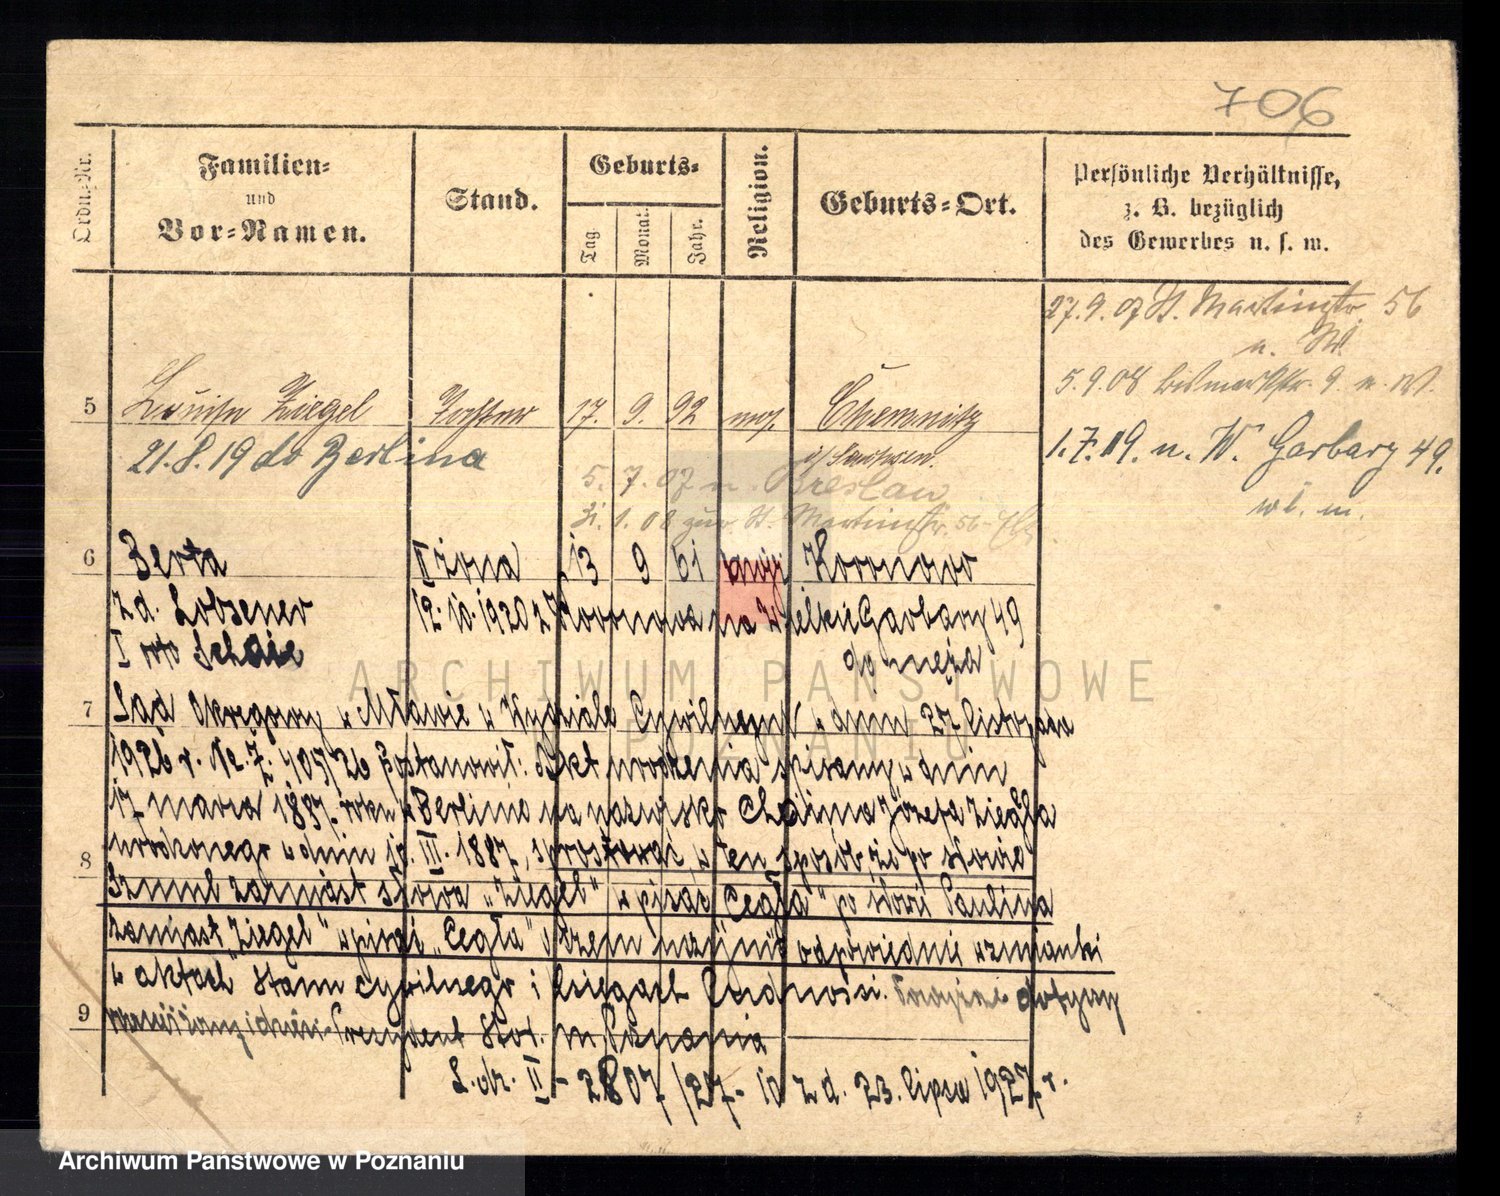 706
Ordn.-Nr.
Familien-
und
Vor-Namen.
Stand.
Geburts-
Tag.
Monat.
Jahr.
Religion.
Geburts-Ort.
Persönliche Verhältnisse,
z. B. bezüglich
des Gewerbes u. s. w.
27.9.07 St. Martinstr. 56
5.9.08 Bismarkstr. 9
5 Louise Ziegel Tochter 17. 9. 92 mos. Chemnitz
i/ Sachsen.
1.7.19. n. W. Garbary 49.
21.8.19 do Berlina
5. 7. 07 n. Breslau
31. 1. 08 zur. St. Martinstr. 56
6 Berta II żona 13 9 61 Koronowo
z d. Lobsener 12.10.1920 z Koronowa na Wielkie Garbary 49
I voto Schaie do męża
7 Sąd Okręgowy w Mławie w Wydziale Cywilnym w dniu 27 listopada
1926 r. No. Z. 405/26 postanowił: Akt urodzenia spisany w dniu
17 marca 1887. roku w Berlinie na nazwisko Chaima Józefa Ziegla
urodzonego w dniu 10. III. 1887, sprostować w ten sposób, że po słowie
8 Szmul zamiast słowa „Ziegel" wpisać „Cegła" po słowie Paulina
zamiast „Ziegel" wpisać „Cegła" o czem uczynić odpowiednie wzmianki
w aktach stanu cywilnego i księgach ludności. dotyczy
9 również żony i dzieci. Prezydent Stoł. m. Poznania
L. dz. II - 2807/27 - 10 z d. 23. lipca 1927 r.
ARCHIWUM PAŃSTWOWE
W POZNANIU
Archiwum Państwowe w Poznaniu